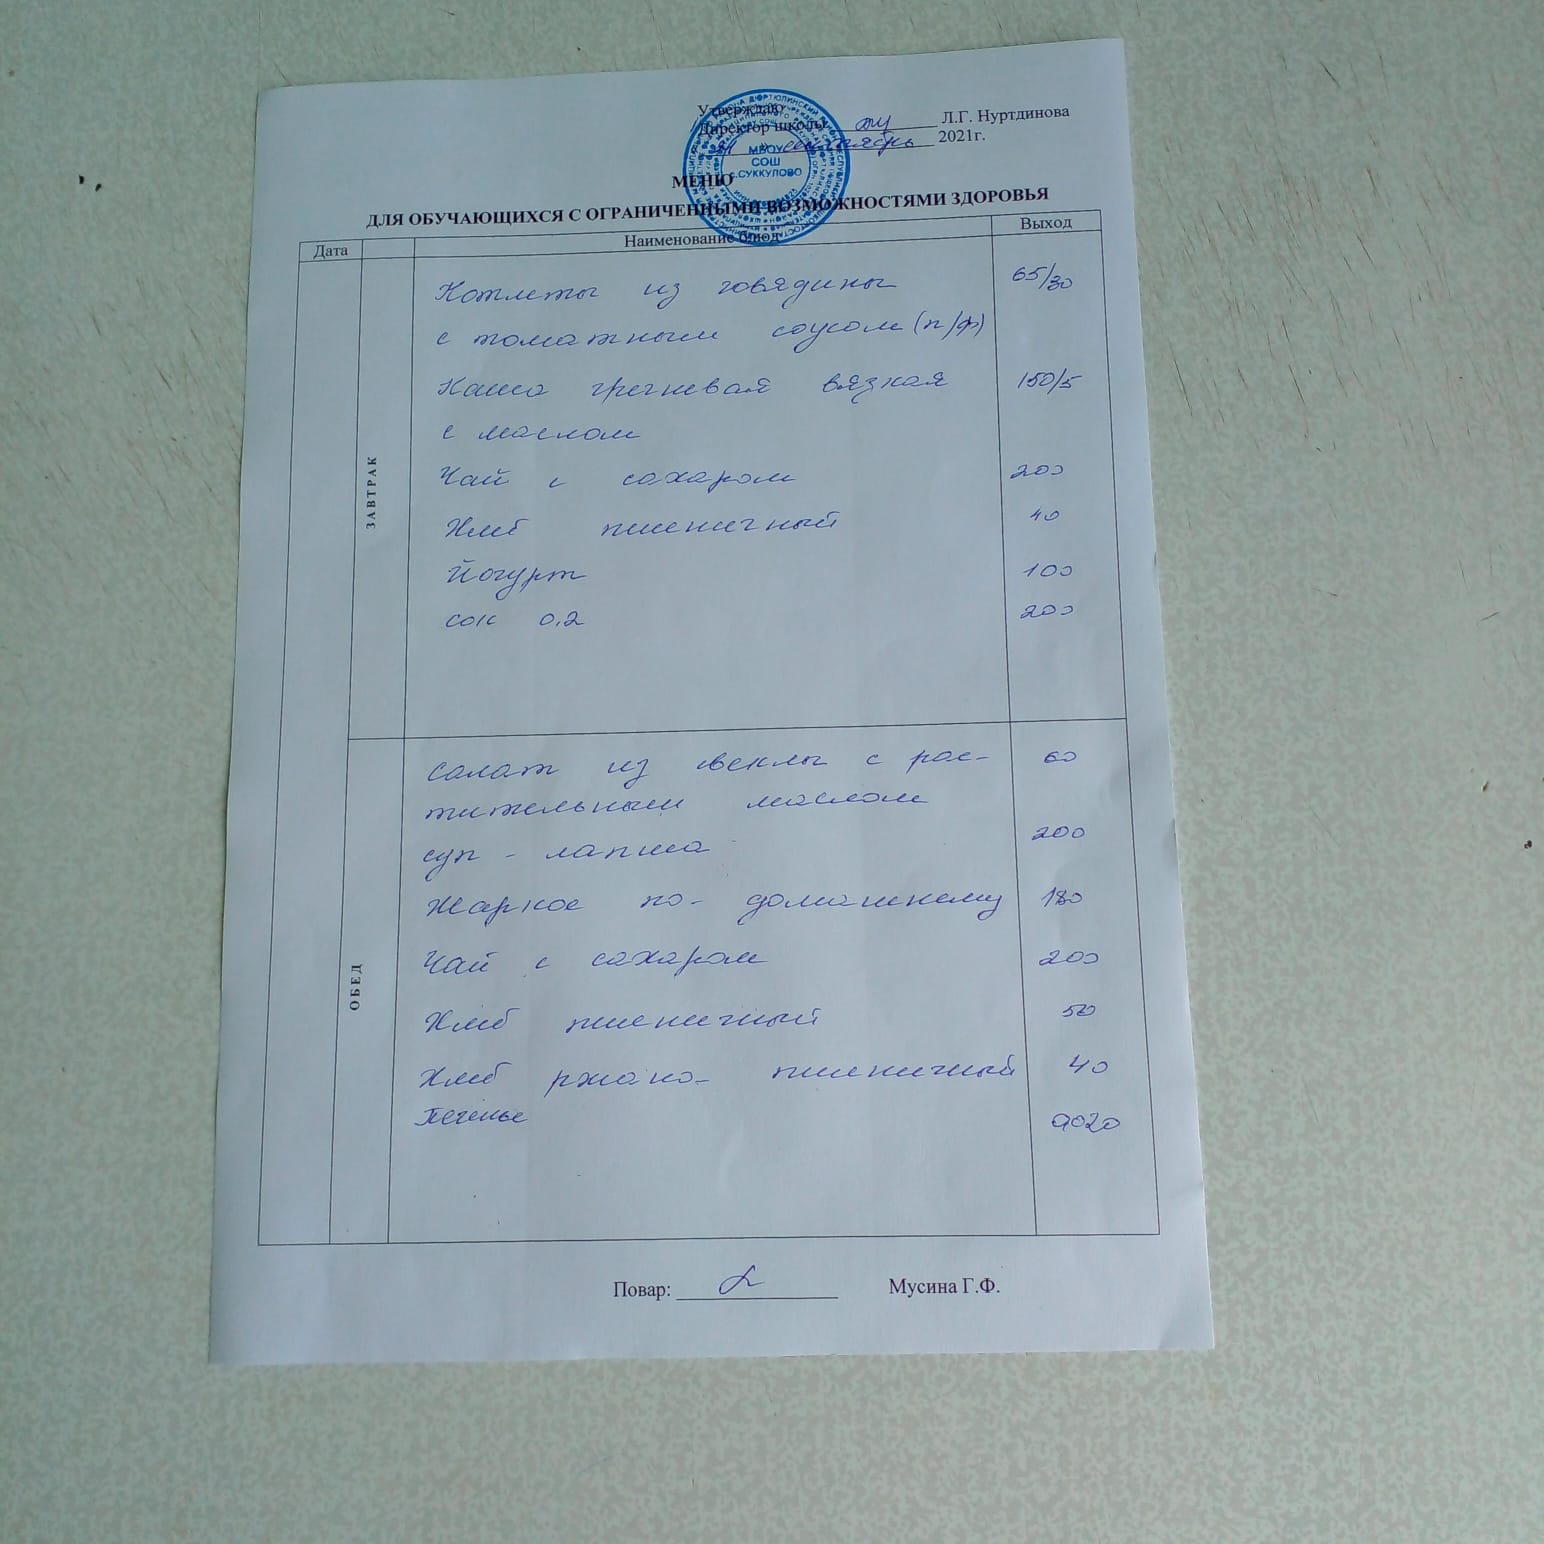 Утверждаю
Директор школы Л.Г. Нуртдинова
сентябрь 2021г.
МБОУ
СОШ
с.СУККУЛОВО
МЕНЮ
ДЛЯ ОБУЧАЮЩИХСЯ С ОГРАНИЧЕННЫМИ ВОЗМОЖНОСТЯМИ ЗДОРОВЬЯ
Дата Наименование блюд Выход
ЗАВТРАК
Котлеты из говядины 65/30
с томатным соусом (п/ф)
Каша гречневая вязкая 150/5
с маслом
Чай с сахаром 200
Хлеб пшеничный 40
Йогурт 100
сок 0,2 200
ОБЕД
Салат из свеклы с рас- 60
тительным маслом
суп - лапша 200
Жаркое по- домашнему 180
Чай с сахаром 200
Хлеб пшеничный 50
Хлеб ржано- пшеничный 40
Печенье
Повар: Мусина Г.Ф.